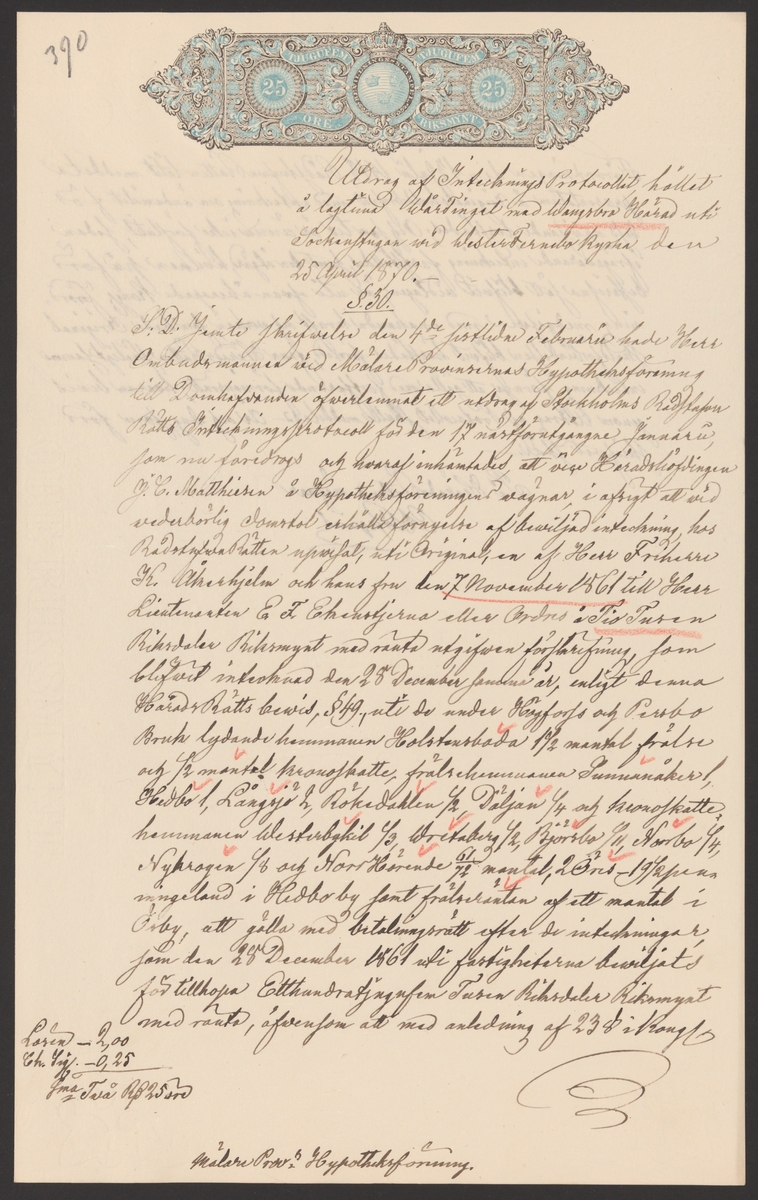 390
TJUGUFEM TJUGUFEM
25 25
ÖRE RIKSMYNT
Utdrag af Intecknings Protocollet, hållet
å lagtima Wårtinget med Wangsbro Härad uti
Sockenstugan wid Westerfernebo Kyrka den
25 April 1870.
§.30.
S. D. Jemte skrifwelse den 4de sistlidne Februari hade Herr
Ombudsmannen wid Mälare Provinsernas Hypotheksförening
till Domhafvanden öfwerlemnat ett utdrag af Stockholms Rådstufvu
Rätts Inteckningsprotocoll för den 17 nästförutgångne Januari,
som nu föredrogs och hvaraf inhämtades, att vice Häradshöfdingen
J. C. Matthiesen å Hypotheksföreningens vägnar, i afsigt att wid
vederbörlig domstol erhålla förnyelse af bewiljad inteckning, hos
Rådstufvu Rätten upwisat, uti Original, en af Herr Friherre
K. Åkerhjelm och hans fru den 7 November 1861 till Herr
Lieutenanten E F Ekenstjerna eller Ordres å Tio Tusen
Riksdaler Riksmynt med ränta utgifwen förskrifning, som
blifwit intecknad den 28 December samma år, enligt denna
Härads Rätts bewis, §49, uti de under Högfors och Persbo
Bruk lydande hemmanen Holstensboda 1 1/2 mantal frälse
och 1/2 mantal kronoskatte, frälsehemmanen Sunnanåker 1,
Hedbo 1, Långsjö 2, Rökedahlen 1/2, Döljan 1/4 och kronoskatte
hemmanen Westerbykil 1/3, Wretaberg 1/2, Björsbo 1/1, Norbo 1/4,
Nykrogen 1/8 och Norr Hörende 61/72 mantal, 2 Öres 19 1/2 pen
ningeland i Hedboby samt frälseräntan af ett mantal i
Örby, att gälla med betalningsrätt efter de inteckningar,
som den 28 December 1861 uti fastigheterna bewiljats
för tillhopa Etthundratjugufem Tusen Riksdaler Riksmynt
med ränta, äfwensom att med anledning af 23 § i Kongl
Lösen — 2,00
Ch. Sig. — 0,25
Sma Två Rd 25 öre
Mälare Prow:s Hypotheksförening.